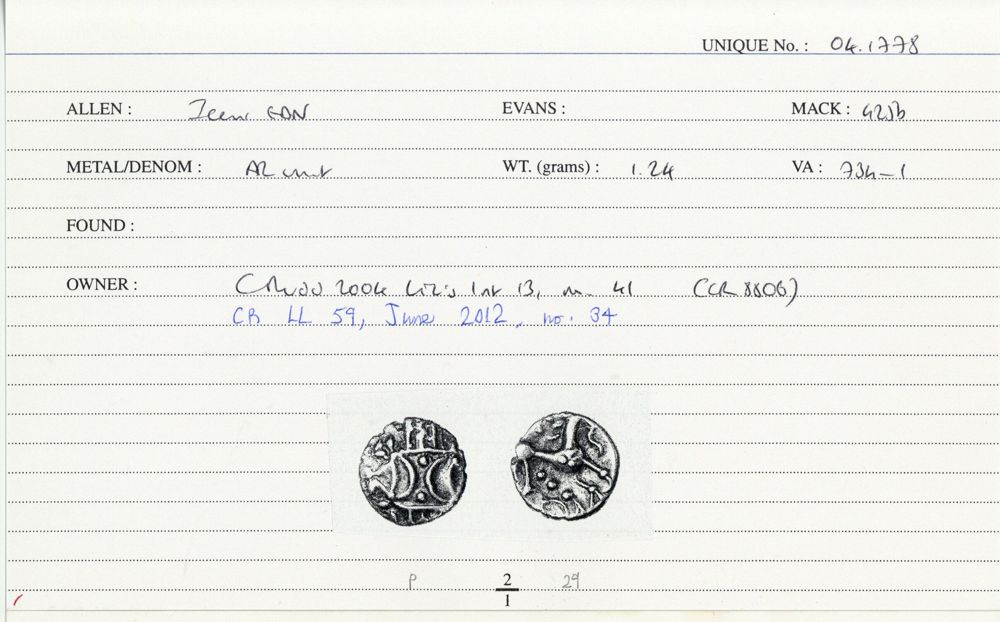 UNIQUE No. : 04.1778
ALLEN : Iceni EDN EVANS : MACK : 425b
METAL/DENOM : AR unit WT. (grams) : 1.24 VA : 734-1
FOUND :
OWNER : CRudd 2004 Liz's List 13, no. 41 (CR 8806)
CR LL 59, June 2012, no. 34
P 2 29
1